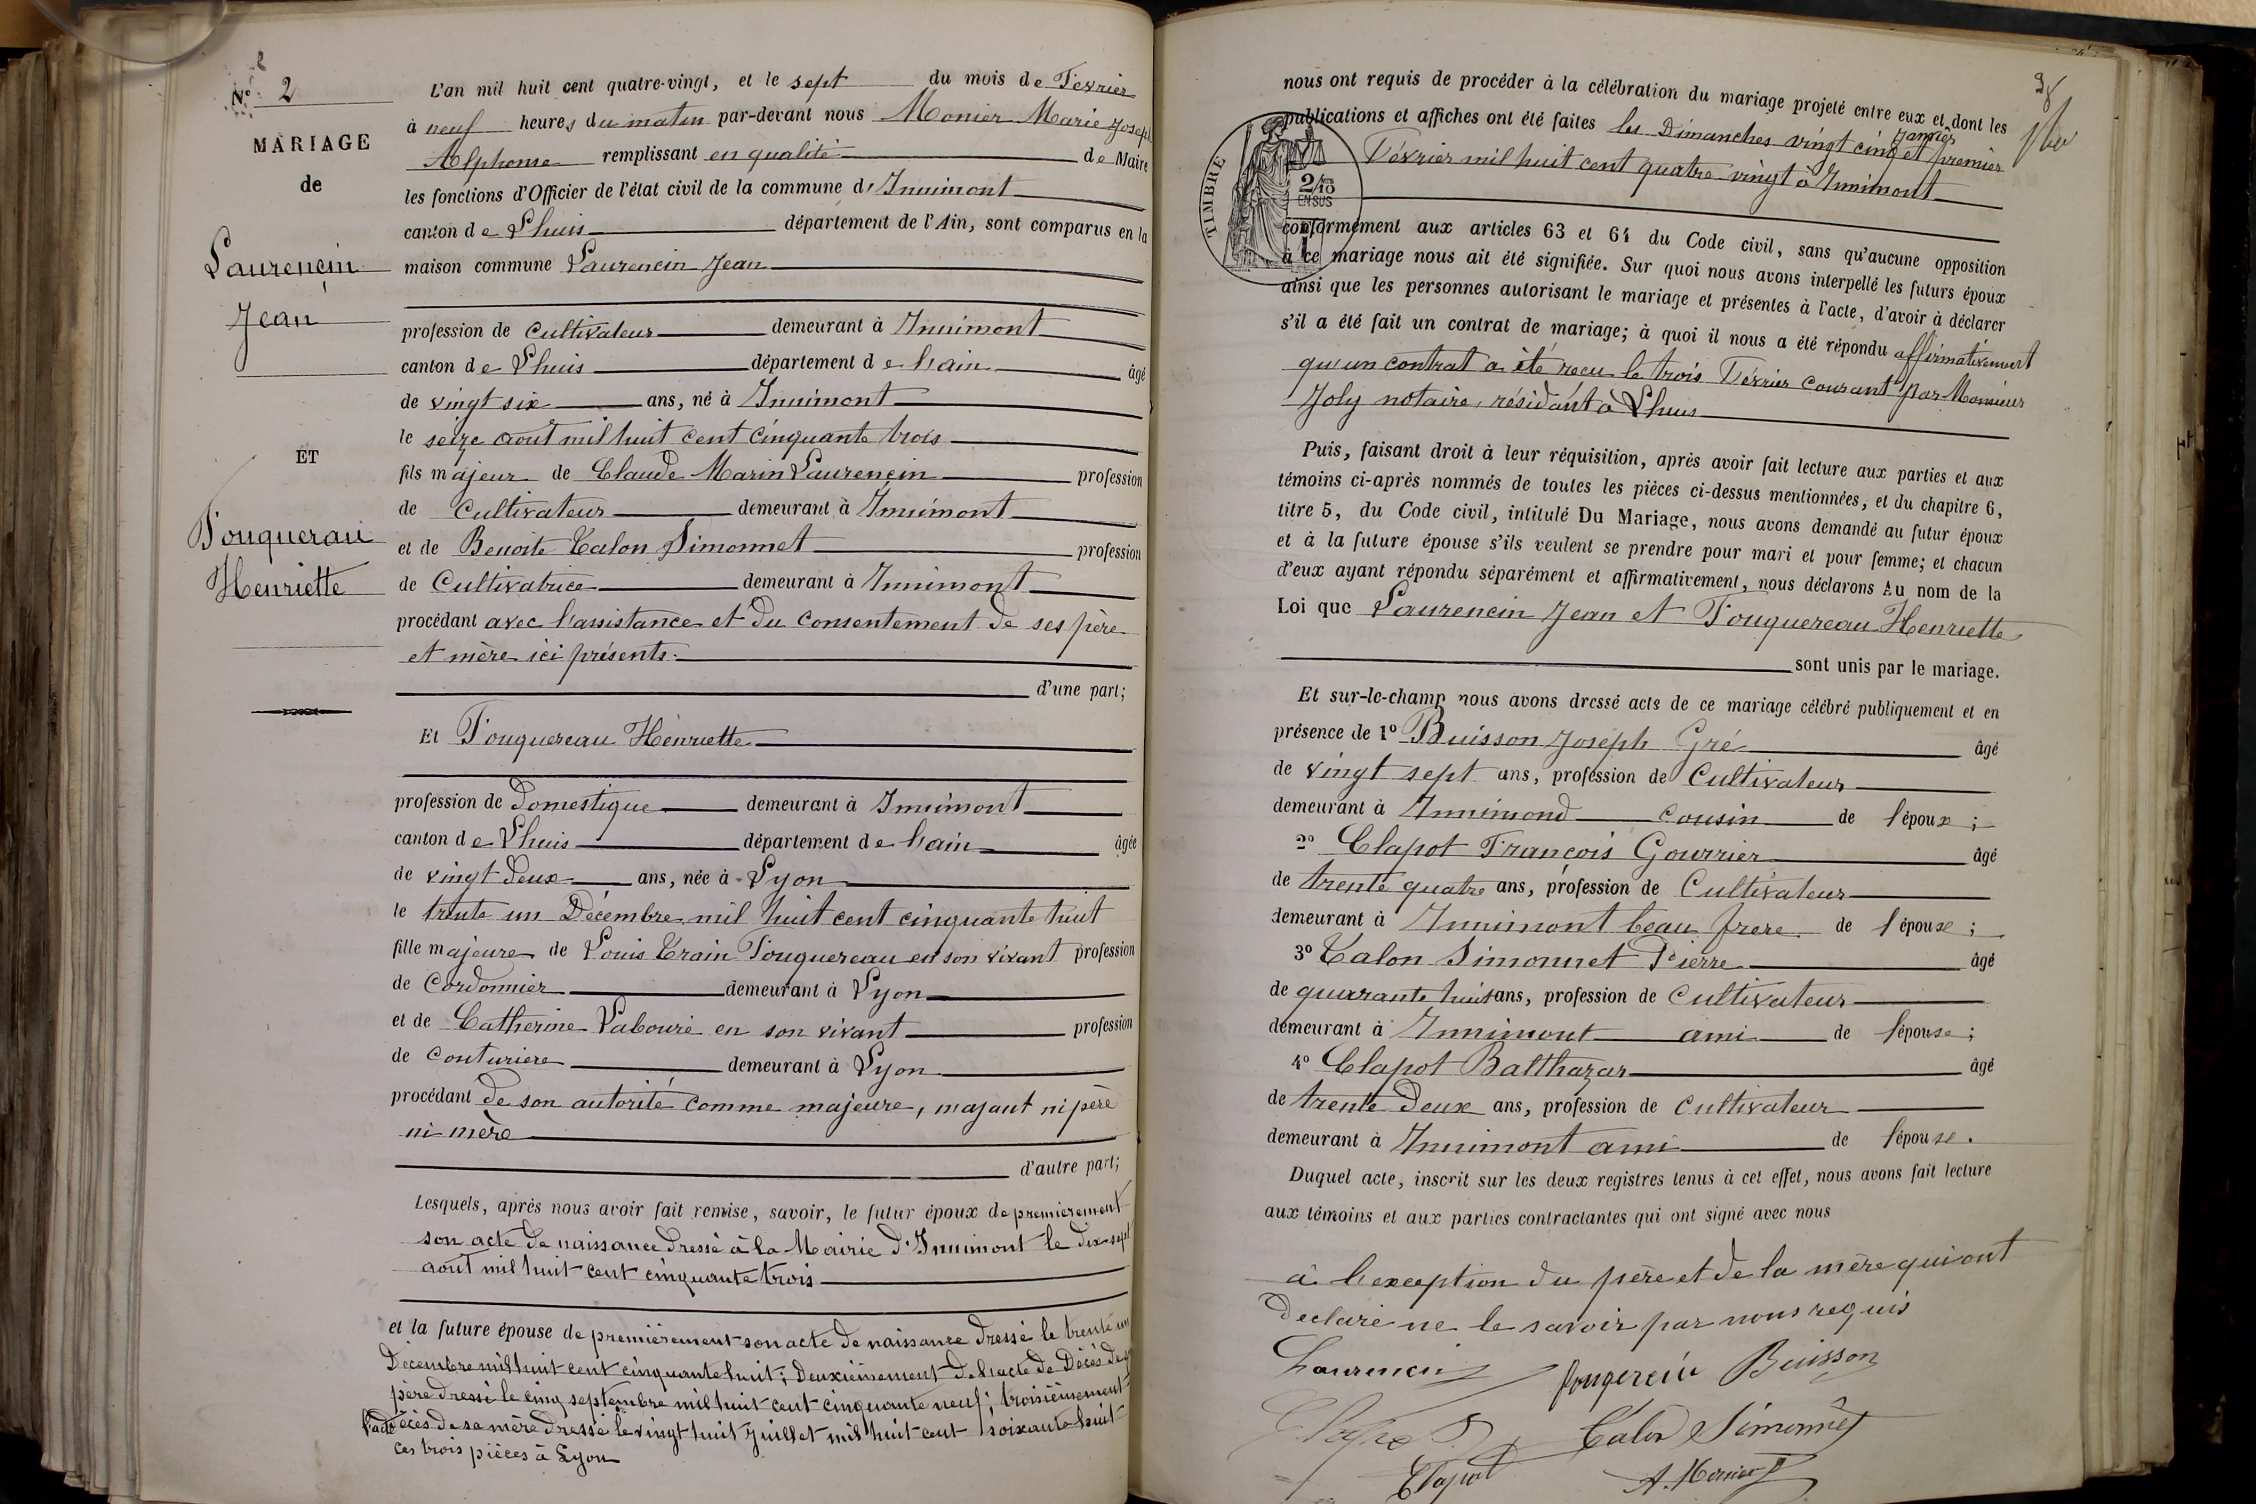 N° 2
MARIAGE
de
Laurencin
Jean
ET
Fouquerau
Henriette
L'an mil huit cent quatre-vingt, et le sept du mois de Fevrier
à neuf heures du matin par-devant nous Monier Marie Joseph
Alphonse remplissant en qualité de Maire
les fonctions d'Officier de l'état civil de la commune d'Innimont
canton de Lhuis département de l'Ain, sont comparus en la
maison commune Laurencin Jean
profession de Cultivateur demeurant à Innimont
canton de Lhuis département de l'ain âgé
de vingt six ans, né à Innimont
le seize aout mil huit cent cinquante trois
fils majeur de Claude Marin Laurencin profession
de Cultivateur demeurant à Innimont
et de Benoite Talon Simonnet profession
de Cultivatrice demeurant à Innimont
procédant avec l'assistance et du consentement de ses père
et mère ici présents.
d'une part;
Et Fouquereau Henriette
profession de Domestique demeurant à Innimont
canton de Lhuis département de l'ain âgée
de vingt deux ans, née à Lyon
le trente un Décembre mil huit cent cinquante huit
fille majeure de Louis Train Fouquereau en son vivant profession
de Cordonnier demeurant à Lyon
et de Catherine Labouré en son vivant profession
de Couturiere demeurant à Lyon
procédant de son autorité comme majeure, n'ayant ni père
ni mère
d'autre part;
Lesquels, après nous avoir fait remise, savoir, le futur époux de premierement
son acte de naissance dressé à la Mairie d'Innimont le dix sept
aout mil huit cent cinquante trois
et la future épouse de premièrement son acte de naissance dressé le trente un
Décembre mil huit cent cinquante huit; Deuxièmement de l'acte de Décès de
père dressé le cinq septembre mil huit cent cinquante neuf; troisièmement
décès de sa mère dressé le vingt huit Juillet mil huit cent soixante huit
ces trois pièces à Lyon
nous ont requis de procéder à la célébration du mariage projeté entre eux et dont les
publications et affiches ont été faites les Dimanches vingt cinq Janvier et premier
Février mil huit cent quatre vingt à Innimont
TIMBRE
2/10
EN SUS
conformément aux articles 63 et 64 du Code civil, sans qu'aucune opposition
à ce mariage nous ait été signifiée. Sur quoi nous avons interpellé les futurs époux
ainsi que les personnes autorisant le mariage et présentes à l'acte, d'avoir à déclarer
s'il a été fait un contrat de mariage; à quoi il nous a été répondu affirmativement
qu'un contrat a été recu le trois Février courant par Monsieur
Joly notaire, résidant à Lhuis
Puis, faisant droit à leur réquisition, après avoir fait lecture aux parties et aux
témoins ci-après nommés de toutes les pièces ci-dessus mentionnées, et du chapitre 6,
titre 5, du Code civil, intitulé Du Mariage, nous avons demandé au futur époux
et à la future épouse s'ils veulent se prendre pour mari et pour femme; et chacun
d'eux ayant répondu séparément et affirmativement, nous déclarons Au nom de la
Loi que Laurencin Jean et Fouquereau Henriette
sont unis par le mariage.
Et sur-le-champ nous avons dressé acte de ce mariage célébré publiquement et en
présence de 1° Buisson Joseph Gré âgé
de vingt sept ans, profession de Cultivateur
demeurant à Innimond cousin de l'époux;
2° Clapot François Gourrier âgé
de trente quatre ans, profession de Cultivateur
demeurant à Innimont beau frere de l'épouse;
3° Talon Simonnet Pierre âgé
de quarante huit ans, profession de Cultivateur
demeurant à Innimont ami de l'épouse;
4° Clapot Balthazar âgé
de trente deux ans, profession de Cultivateur
demeurant à Innimont ami de l'épouse.
Duquel acte, inscrit sur les deux registres tenus à cet effet, nous avons fait lecture
aux témoins et aux parties contractantes qui ont signé avec nous
à l'exception du père et de la mère qui ont
declaré ne le savoir par nous requis
Laurencin Fougereau Buisson
Talon Simonnet
Clapot A. Monier